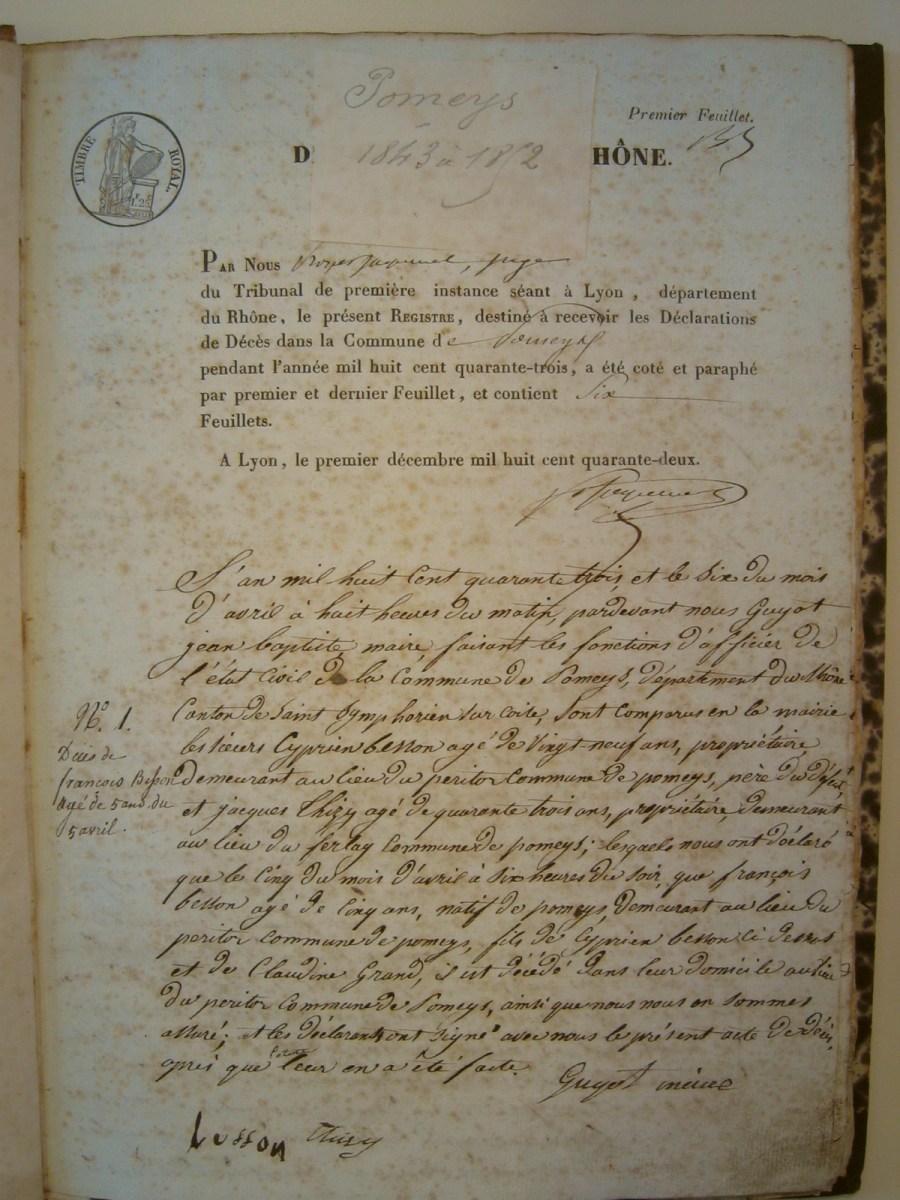 Pomeys
Premier Feuillet.
TIMBRE ROYAL.
D 1843 à 1852 HÔNE.
PAR NOUS juge
du Tribunal de première instance séant à Lyon, département
du Rhône, le présent REGISTRE, destiné à recevoir les Déclarations
de Décès dans la Commune de Pomeys
pendant l'année mil huit cent quarante-trois, a été coté et paraphé
par premier et dernier Feuillet, et contient Six
Feuillets.
A Lyon, le premier décembre mil huit cent quarante-deux.
L'an mil huit Cent quarante trois, et le Six du mois
D'avril à huit heures du matin, pardevant nous Guyot
jean baptiste, maire faisant les fonctions d'officier de
l'état Civil de la Commune de Pomeys, département du Rhône
Canton de Saint Symphorien sur Coise, Sont Comparus en la mairie
N.º 1.
Décès de
françois Besson
agé de 5 ans. du
5 avril.
les sieurs Cyprien besson agé de Vingt neuf ans, propriétaire
demeurant au lieu du peritor Commune de pomeys, père du défunt
et jacques Thizy agé de quarante trois ans, propriétaire, demeurant
au lieu du fertay Commune de pomeys; lesquels nous ont déclaré
que le Cinq du mois D'avril à Six heures du Soir, que françois
besson agé de Cinq ans, natif de pomeys, demeurant au lieu du
peritor Commune de pomeys, fils de Cyprien besson Ci dessus
et de Claudine Grand, il est décédé dans leur domicile au lieu
du peritor Commune de Pomeys, ainsi que nous nous en Sommes
assuré; et les déclarant ont Signé avec nous le présent acte de décès,
après que leur en a été faite.
Guyot maire
besson Thizy